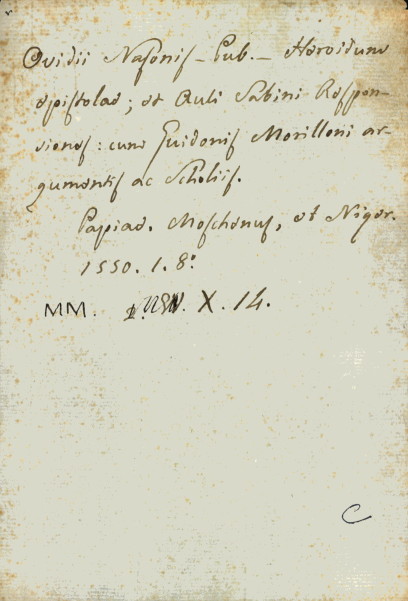 Ovidii Nasonis - Pub. - Heroidum
epistolae; et Auli Sabini Respon-
siones: cum Guidonis Morilloni ar-
gumentis ac Scholiis.
Papiae. Moschenus, et Niger.
1550. 1. 8.º
MM. X. 14.
C